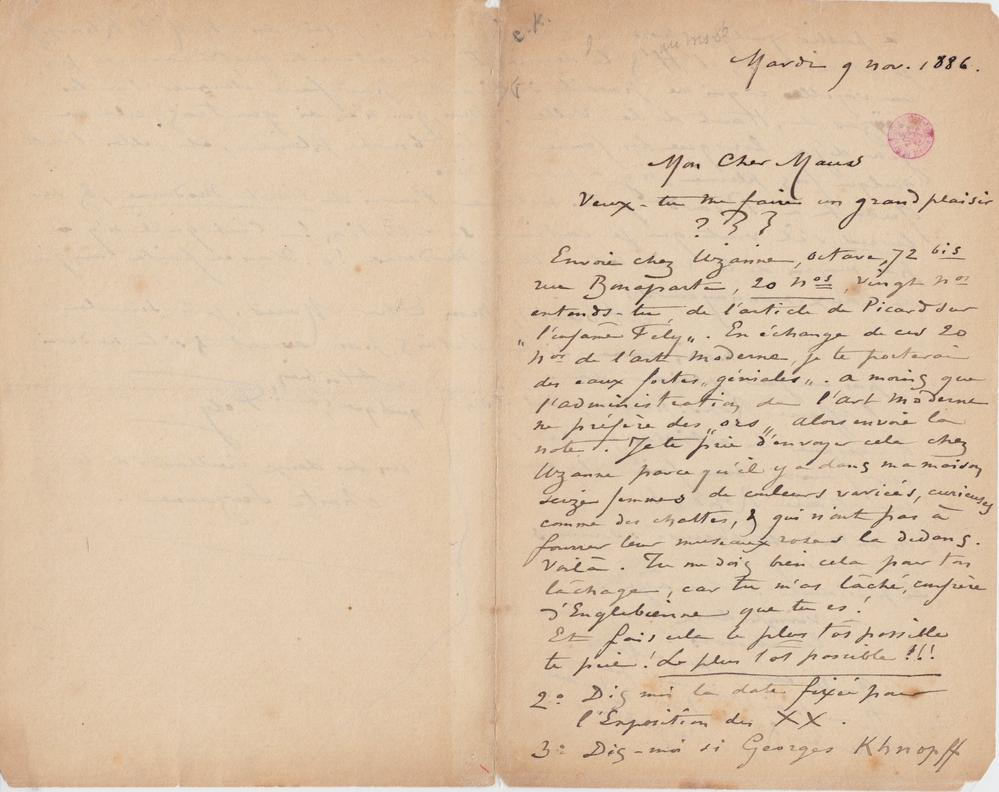 Mardi 9 nov. 1886.
Mon Cher Maus
Veux-tu me faire un grand plaisir
? ? ?
Envoie chez Uzanne, octave, 72 bis
rue Bonaparte, 20 nos, vingt nos
entends-tu de l'article de Picard sur
„l'infame Fély„. En échange de ces 20
nos de l'art moderne, je te porterai
des eaux fortes „géniales„. a moins que
l'administration de l'art moderne
ne préfère des „ors„ alors envoie la
note. Je te prie d'envoyer cela chez
Uzanne parce qu'il y a dans ma maison
seize femmes de couleurs variées, curieuses
comme des chattes, & qui n'ont pas à
fourrer leur museaux roses la dedans.
Voilà. Tu me dois bien cela pour ton
lâchage, car tu m'as lâché, confrère
d'Englebienne que tu es!
Et fais cela le plus tôt possible
te prie! Le plus tôt possible!!!
2º Dis moi la date fixée pour
l'Exposition des XX.
3º Dis-moi si Georges Khnopff